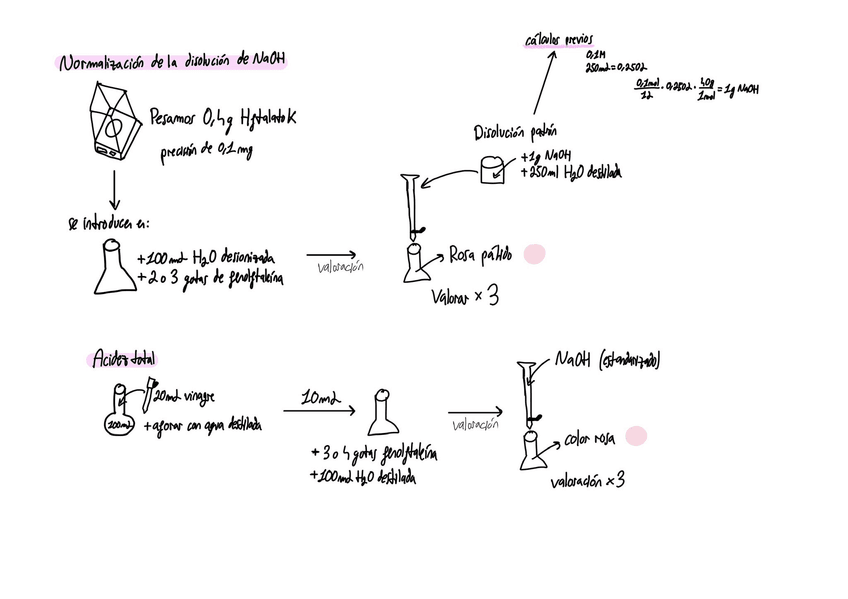 cálculos previos
0,1M
250mL = 0,250L
0,1mol/1L · 0,250L · 40g/1mol = 1g NaOH
Normalización de la disolución de NaOH
Pesamos 0,4g Hftalato K
precisión de 0,1 mg
Disolución patrón
+1g NaOH
+250ml H2O destilada
se introduce en:
+100mL H2O desionizada
+2 o 3 gotas de fenolftaleína
valoración
Rosa pálido
Valorar x 3
Acidez total
20mL vinagre
100mL
+aforar con agua destilada
10mL
+ 3 o 4 gotas fenolftaleína
+100mL H2O destilada
valoración
NaOH (estandarizado)
color rosa
valoración x3